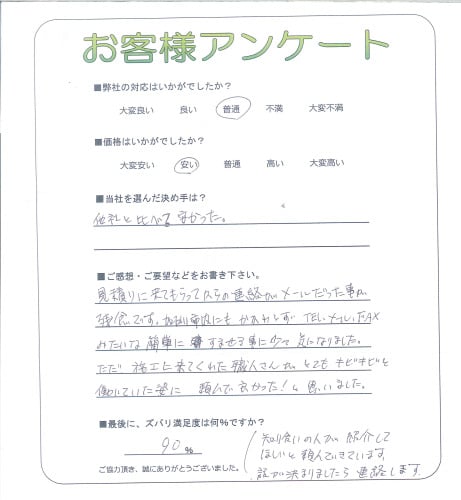 お客様アンケート
■弊社の対応はいかがでしたか？
大変良い 良い 普通 不満 大変不満
■価格はいかがでしたか？
大変安い 安い 普通 高い 大変高い
■当社を選んだ決め手は？
他社と比べる 安かった。
■ご感想・ご要望などをお書き下さい。
見積りに来てもらってからの連絡がメールだった事が
残念です。 市内にもかかわらず TEL・メール・FAX
みたいな簡単に すませる事に少々 気になりました。
ただ 施工に来てくれた職人さんが とても キビキビと
働いていた姿に 頼んで良かった！と思いました。
■最後に、ズバリ満足度は何%ですか？
90%
知り合いの人が 紹介して
ほしいと頼んできています
話が決まりましたら 連絡します
ご協力頂き、誠にありがとうございました。